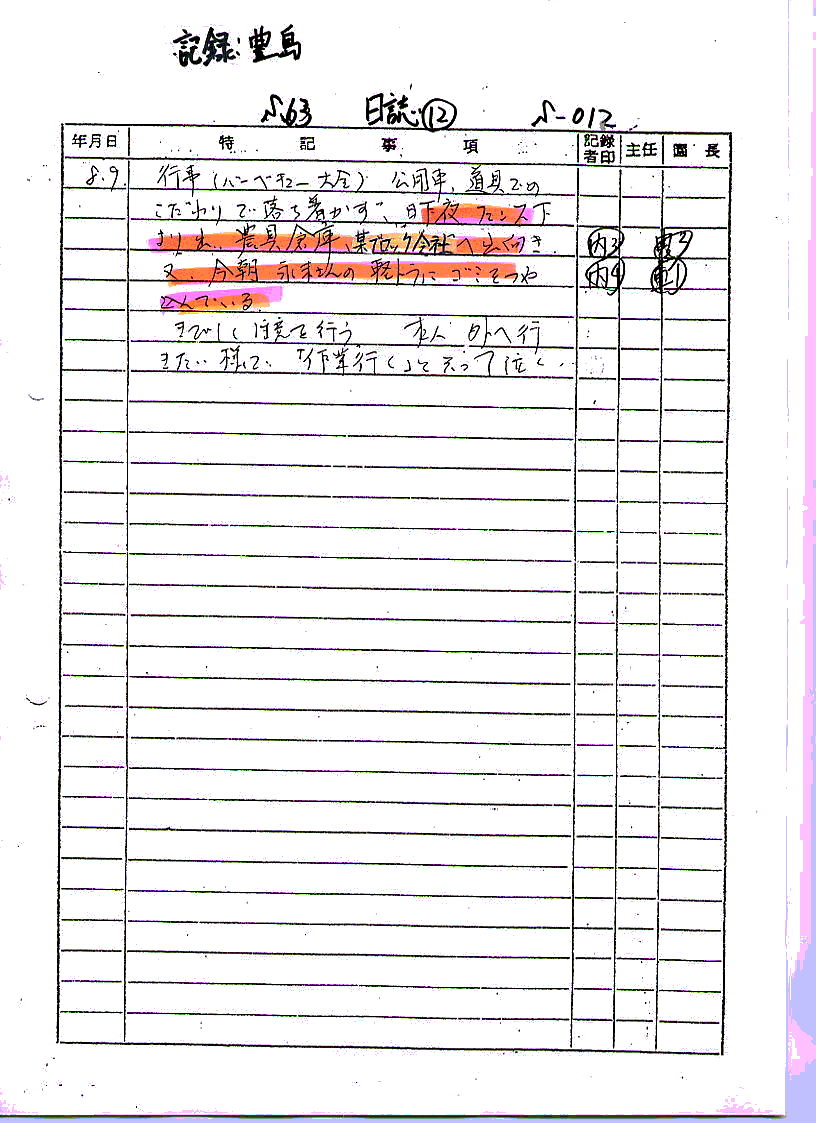 記録:豊島
S63 日誌⑫ S-012
年月日 特記事項 記録者印 主任 園長
8.9. 行事(バーベキュー大会) 公用車、道具での
こだわりで落ち着かず、昨夜フェンス下
より出、農具倉庫、某ブロック会社へ出向き.
又、今朝 さんの軽トラにゴミをつめ
込んでいる.
きびしく注意を行う 本人 外へ行
きたい様で、「作業行く」と云って泣く..
内3
内4